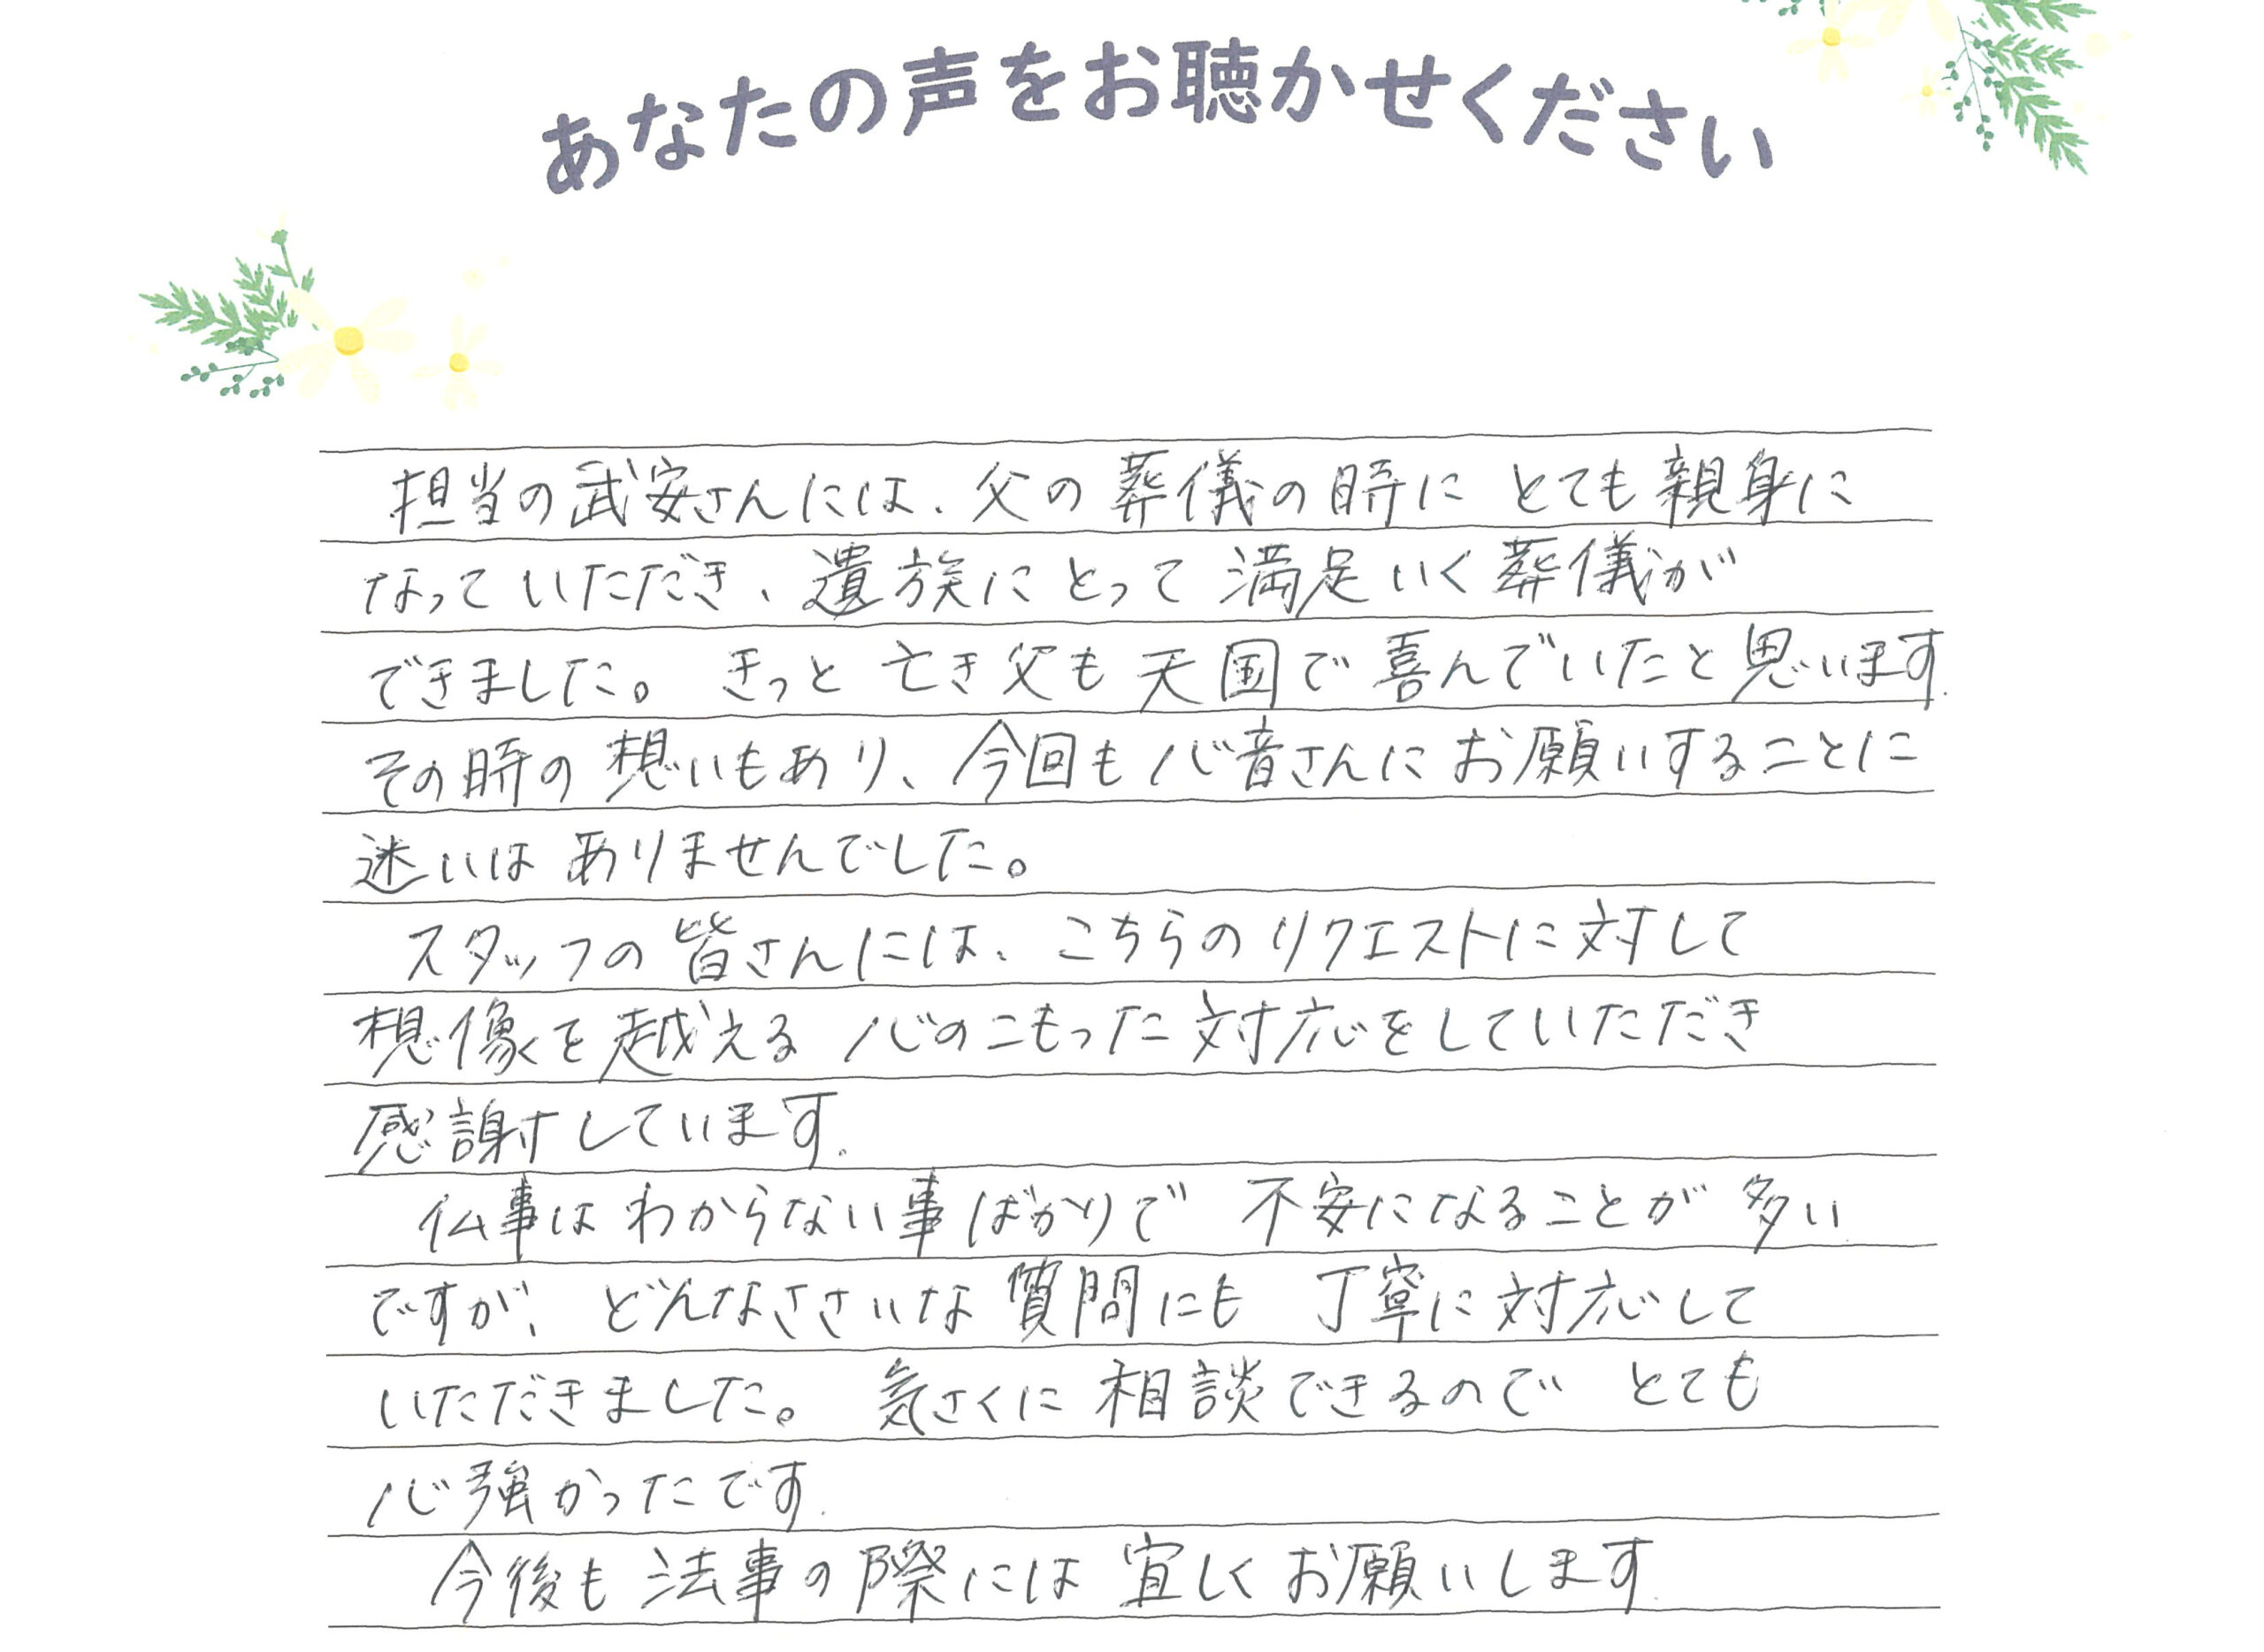 あなたの声をお聴かせください
担当の武安さんには、父の葬儀の時にとても親身に
なっていただき、遺族にとって満足いく葬儀が
できました。きっと亡き父も天国で喜んでいたと思います.
その時の想いもあり、今回も心音さんにお願いすることに
迷いはありませんでした。
スタッフの皆さんには、こちらのリクエストに対して
想像を越える心のこもった対応をしていただき
感謝しています.
仏事はわからない事ばかりで不安になることが多い
ですが、どんなささいな質問にも丁寧に対応して
いただきました。気さくに相談できるのでとても
心強かったです.
今後も法事の際には宜しくお願いします.